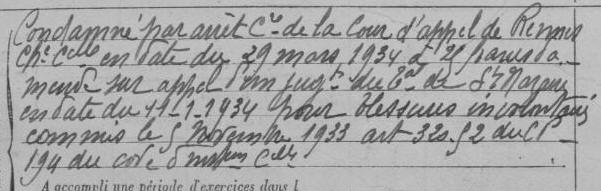 Condamné par arrêt Cre de la Cour d'appel de Rennes
Ch. Celle en date du 29 mars 1934 à 25 francs d'a
mende sur appel d'un jugt du Tal de St Nazaire
en date du 11-1-1934 pour blessures involontaires
commis le 5 Novembre 1933 art 320 § 2 du CP
194 du code d'instron Celle
A accompli une période d'exercices dans l